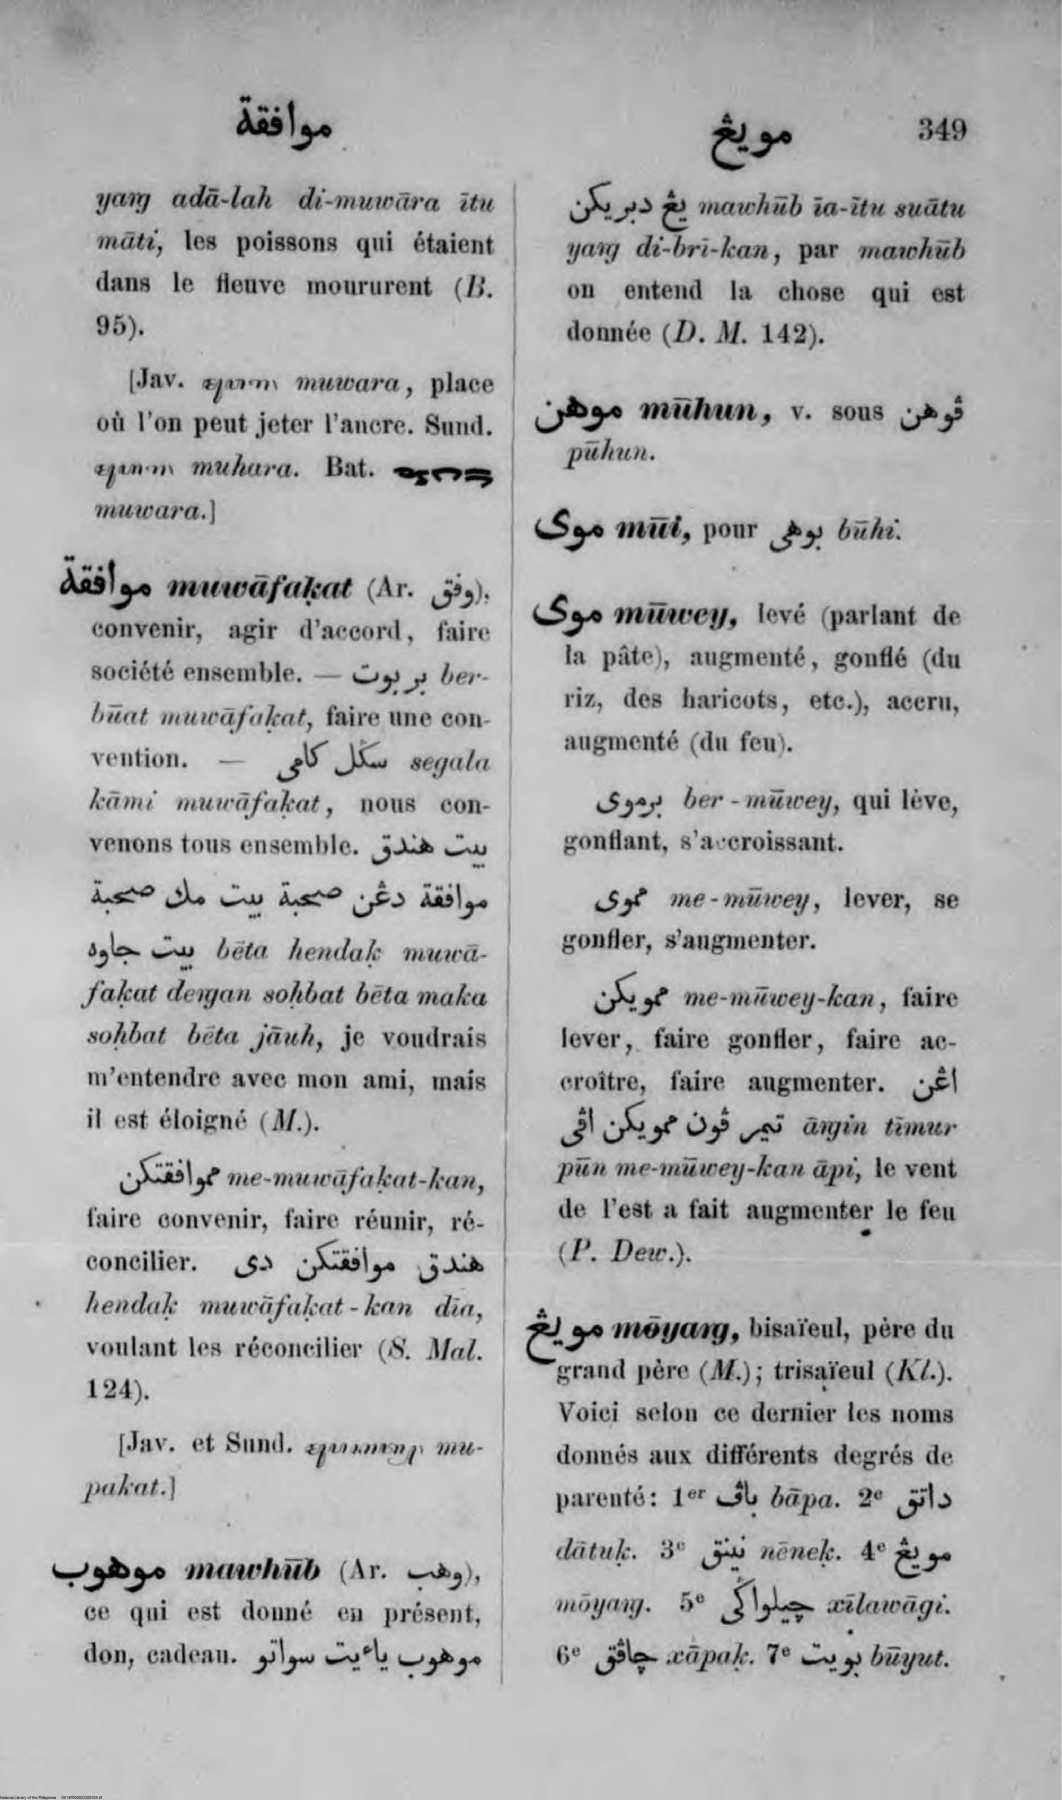 موافقة
مويڠ 349
yaṅg adā-lah di-muwāra ītu
māti, les poissons qui étaient
dans le fleuve moururent (B.
95).
[Jav. muwara, place
où l'on peut jeter l'ancre. Sund.
muhara. Bat.
muwara.]
موافقة muwāfaḳat (Ar. وفق),
convenir, agir d'accord, faire
société ensemble. — بر بوت ber-
būat muwāfaḳat, faire une con-
vention. — سݢل كامي segala
kāmi muwāfaḳat, nous con-
venons tous ensemble. بيت هندق
موافقة دڠن صحبة بيت مك صحبة
بيت جاوه bēta hendaḳ muwā-
faḳat deṅgan soḥbat bēta maka
soḥbat bēta jāuh, je voudrais
m'entendre avec mon ami, mais
il est éloigné (M.).
مموافقتكن me-muwāfaḳat-kan,
faire convenir, faire réunir, ré-
concilier. هندق موافقتكن دى
hendaḳ muwāfaḳat-kan dīa,
voulant les réconcilier (S. Mal.
124).
[Jav. et Sund. mu-
pakat.]
موهوب mawhūb (Ar. وهب),
ce qui est donné en présent,
don, cadeau. موهوب ياءيت سواتو
يڠ دبريكن mawhūb īa-ītu suātu
yaṅg di-brī-kan, par mawhūb
on entend la chose qui est
donnée (D. M. 142).
موهن mūhun, v. sous ڤوهن
pūhun.
موى mūi, pour بوهى būhi.
موى mūwey, levé (parlant de
la pâte), augmenté, gonflé (du
riz, des haricots, etc.), accru,
augmenté (du feu).
برموى ber-mūwey, qui lève,
gonflant, s'accroissant.
مموى me-mūwey, lever, se
gonfler, s'augmenter.
ممويكن me-mūwey-kan, faire
lever, faire gonfler, faire ac-
croître, faire augmenter. اڠن
تيمر ڤون ممويكن اڤى āṅgin tīmur
pūn me-mūwey-kan āpi, le vent
de l'est a fait augmenter le feu
(P. Dew.).
مويڠ mōyaṅg, bisaïeul, père du
grand père (M.); trisaïeul (Kl.).
Voici selon ce dernier les noms
donnés aux différents degrés de
parenté: 1er باڤ bāpa. 2e داتق
dātuḳ. 3e نينق nēneḳ. 4e مويڠ
mōyaṅg. 5e چيلواݢى xīlawāgi.
6e چاڤق xāpaḳ. 7e بويت būyut.